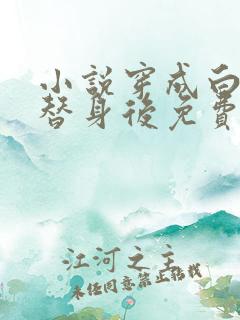 小說穿成白
替身後免費
江河之主
未經同意禁止轉載